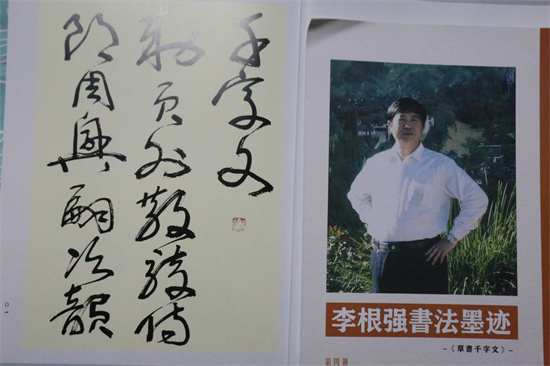 千字文
勅員外散騎侍
郎周興嗣次韻
01
李根强書法墨迹
-《草書千字文》-